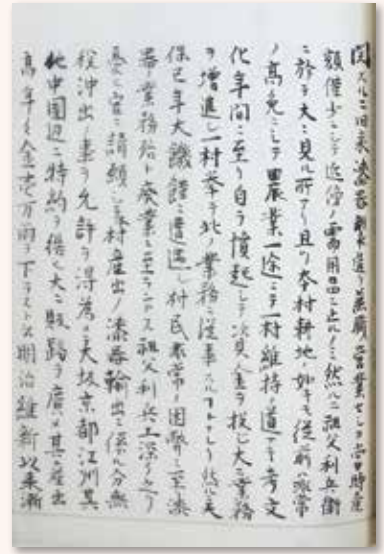 関スルニ旧来漆器製造ノ業蔵営業セシカ当時産
額僅少ニシテ近傍ノ需用品ニ止ルノミ然ルニ祖父利兵衛
ニ於テ大ニ見ル所アリ且ツ本村耕地ノ如キモ従前ハ非常
ノ高免ニシテ農業一途ニテハ一村維持ノ道ナキ考文
化年間ニ至リ自ラ憤起シテ資金ヲ投シ大ニ業務
ヲ増進シ一村挙テ此ノ業務ニ従事スルコトトナレリ然ルニ天
保巳年大饑饉ニ遭遇シ村民非常ノ困弊ニ至漆
器ノ業務殆ト廃業ニ至ラントス祖父利兵エ深ク之ヲ
憂ヒ官ニ請願シ本村産出ノ漆器輸出ニ係ル分無
税沖出ノ事ヲ允許ヲ得為メニ大坂京都江州其
他中国辺ニ特納ヲ得テ大ニ販路ヲ広メ其ノ産出
高年々金壱万両ニ下ラストス明治維新以来漸